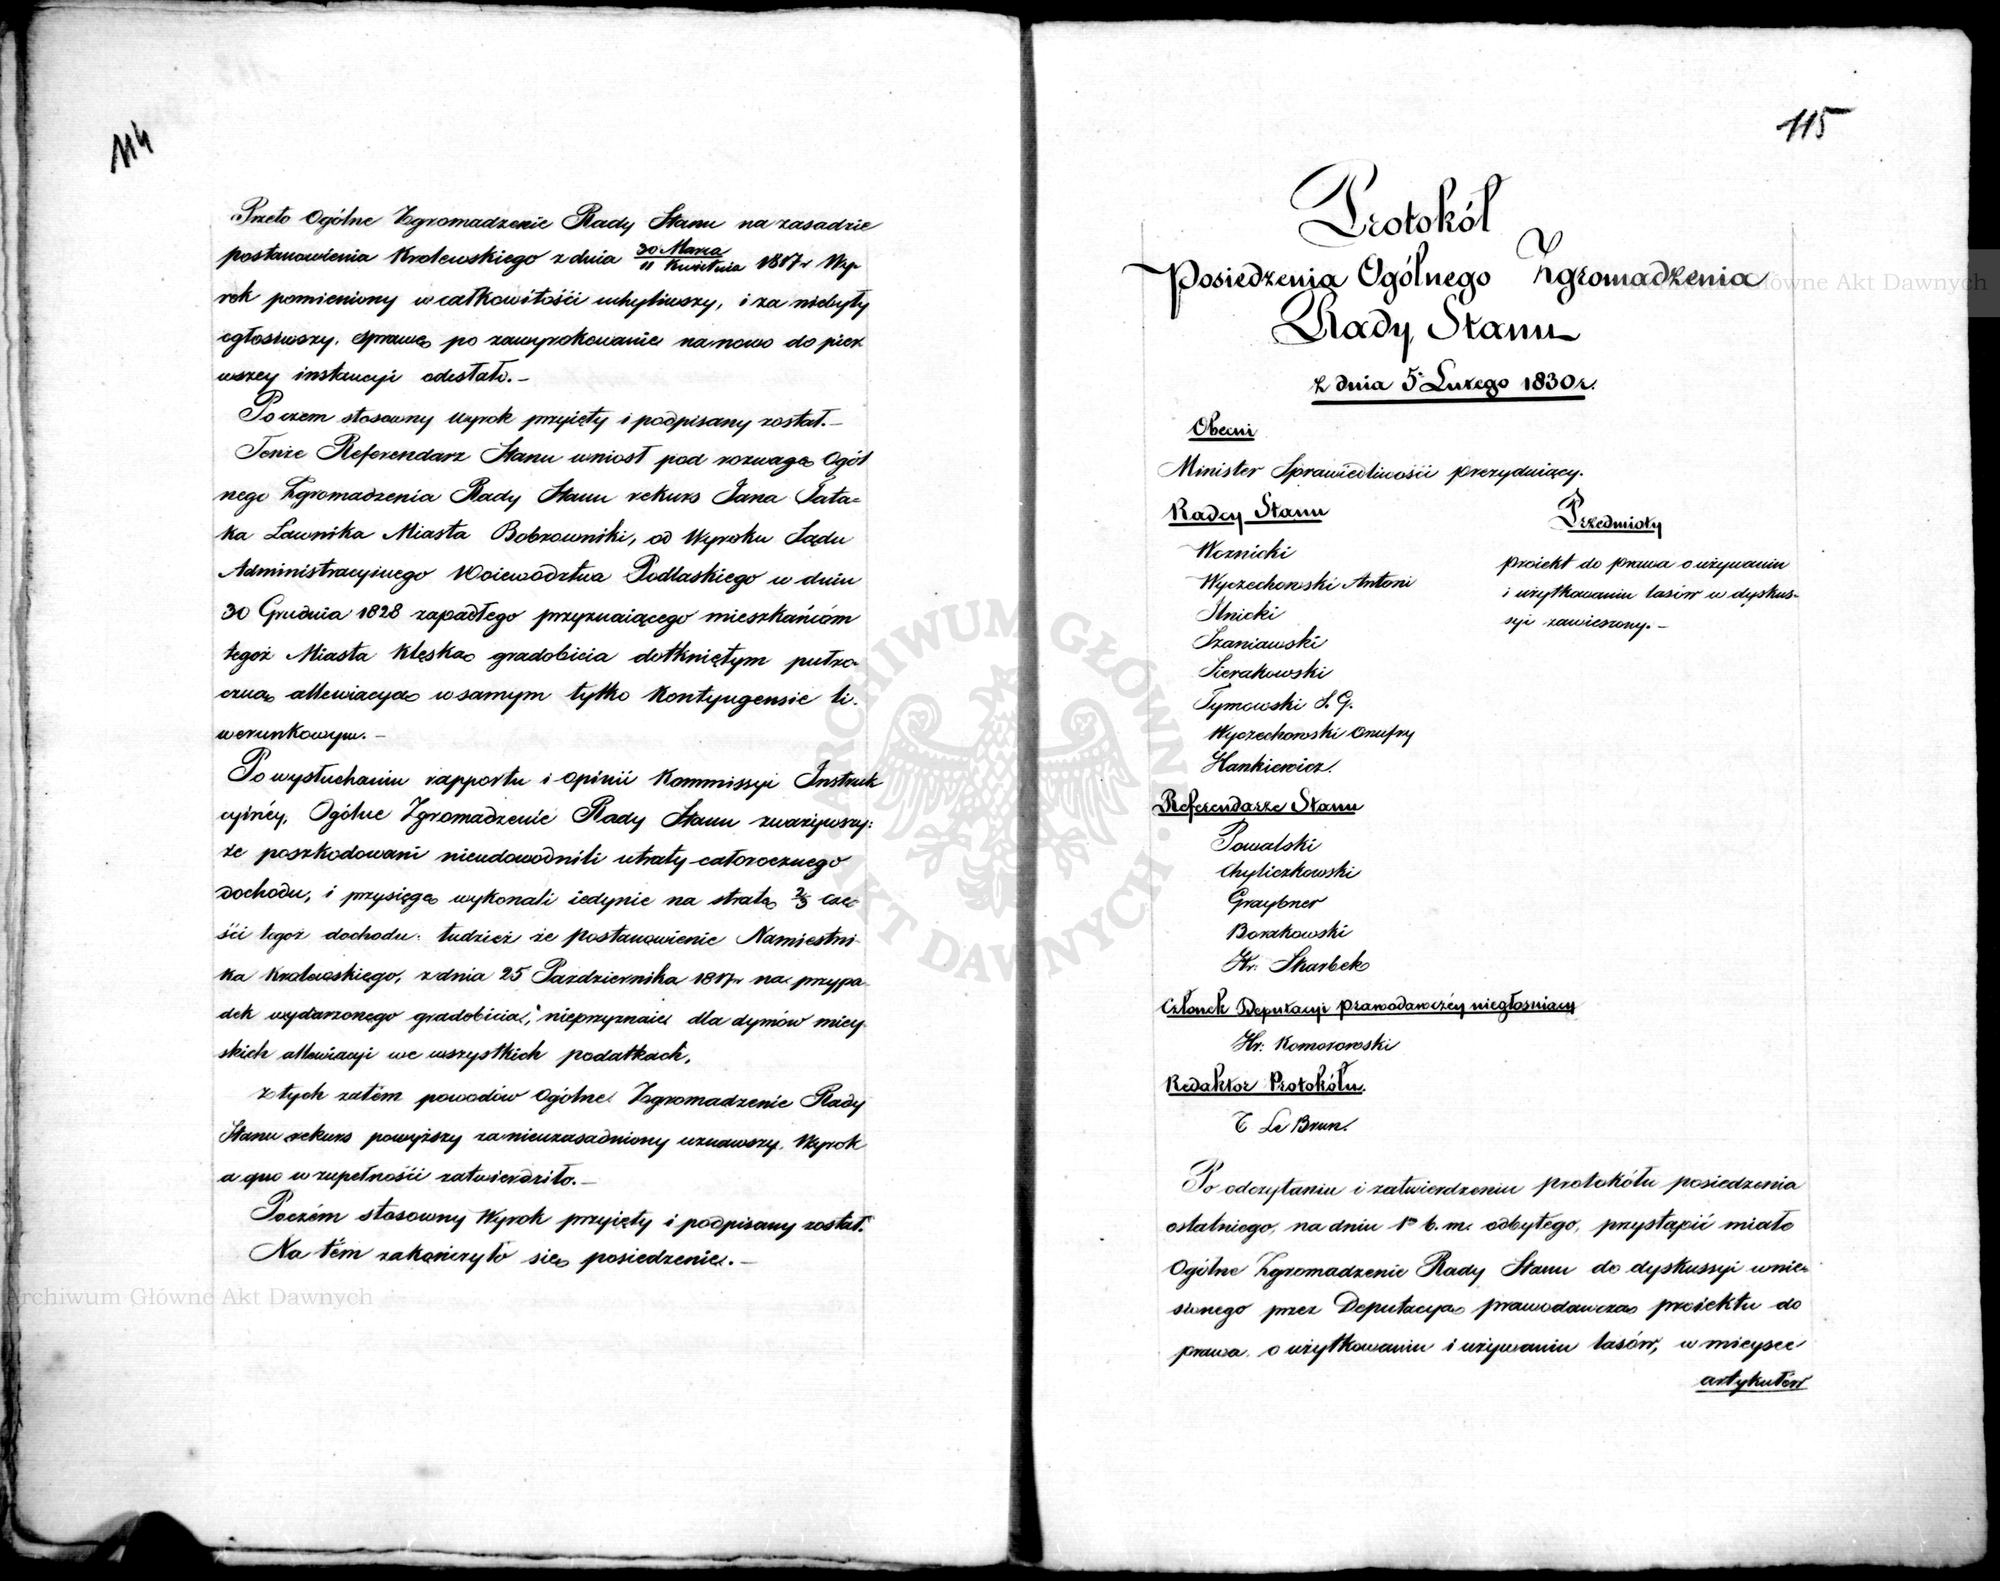 114
Przeto Ogólne Zgromadzenie Rady Stanu na zasadzie
postanowienia Królewskiego z dnia 30 Marca / 11 Kwietnia 1817 r Wy-
rok pomieniony w całkowitości uchyliwszy, i za niebyły
ogłosiwszy, sprawę po zawyrokowanie na nowo do pier
wszey instancyi odesłało.—
Poczem stosowny wyrok przyięty i podpisany został.—
Tenże Referendarz Stanu wniosł pod rozwagę Ogól
nego Zgromadzenia Rady Stanu rekurs Jana Jata-
ka Ławnika Miasta Bobrowniki, od Wyroku Sądu
Administracyinego Woiewództwa Podlaskiego w dniu
30 Grudnia 1828 zapadłego przyznaiącego mieszkańcóm
tegoż Miasta klęską gradobicia dotkniętym pułro-
czną allewiacyą w samym tylko Kontyngensie li-
werunkowym.—
Po wysłuchaniu rapportu i opinii Kommissyi Instruk
cyinéy, Ogólne Zgromadzenie Rady Stanu zważywszy:
że poszkodowani nieudowodnili utraty całorocznego
dochodu, i przysięgę wykonali iedynie na stratę 2/3 czę-
ści tegoż dochodu. tudzież że postanowienie Namiestni-
ka Królewskiego, z dnia 25 Pazdziernika 1817 r na przypa-
dek wydarzonego gradobicia, nieprzyznaie dla dymów miey-
skich allewiacyi we wszystkich podatkach,
z tych zatém powodów Ogólne Zgromadzenie Rady
Stanu rekurs powyższy za nieuzasadniony uznawszy, Wyrok
a quo w zupełności zatwierdziło.—
Poczém stosowny Wyrok przyięty i podpisany został.
Na tém zakończyło się posiedzenie.—
Archiwum Główne Akt Dawnych
115
Protokół
Posiedzenia Ogólnego Zgromadzenia
Rady Stanu
z dnia 5. Lutego 1830 r.
Obecni
Minister Sprawiedliwości prezyduiący.
Radcy Stanu
Woznicki
Wyczechowski Antoni
Ilnicki
Szaniawski
Sierakowski
Tymowski S. G.
Wyczechowski Onufry
Hankiewicz.
Przedmioty
proiekt do prawa o używaniu
i użytkowaniu lasów w dyskus-
syi zawieszony.—
Referendarze Stanu
Powalski
Chyliczkowski
Graybner
Borakowski
Hr. Skarbek
Członek Deputacyi prawodawczéy niegłosuiący
Hr: Komorowski
Redaktor Protokółu.
T Le Brun.
Po odczytaniu i zatwierdzeniu protokółu posiedzenia
ostatniego, na dniu 1º b. m. odbytego, przystąpić miało
Ogólne Zgromadzenie Rady Stanu do dyskussyi wnie-
sionego przez Deputacyą prawodawczą proiektu do
prawa o użytkowaniu i używaniu lasów, w mieysce
artykułów
Archiwum Główne Akt Dawnych
ARCHIWUM GŁÓWNE
AKT DAWNYCH